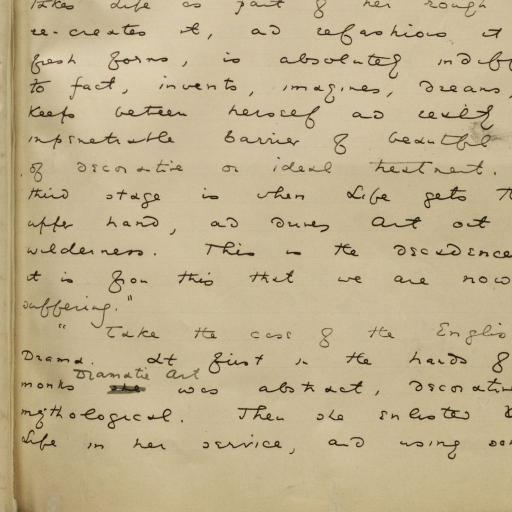 takes Life as part of her rough
re-creates it, and refashions it
fresh forms, is absolutely indif
to fact, invents, imagines, dreams,
keeps between herself and reality
impenetrable barrier of beautiful
of decorative or ideal treatment.
third stage is when Life gets t
upper hand, and drives Art out
wilderness. This is the decadence
it is from this that we are now
suffering."
"Take the case of the Englis
Drama. At first in the hands of
monks Dramatic Art was abstract, decorative
mythological. Then she enlisted
Life in her service, and using som